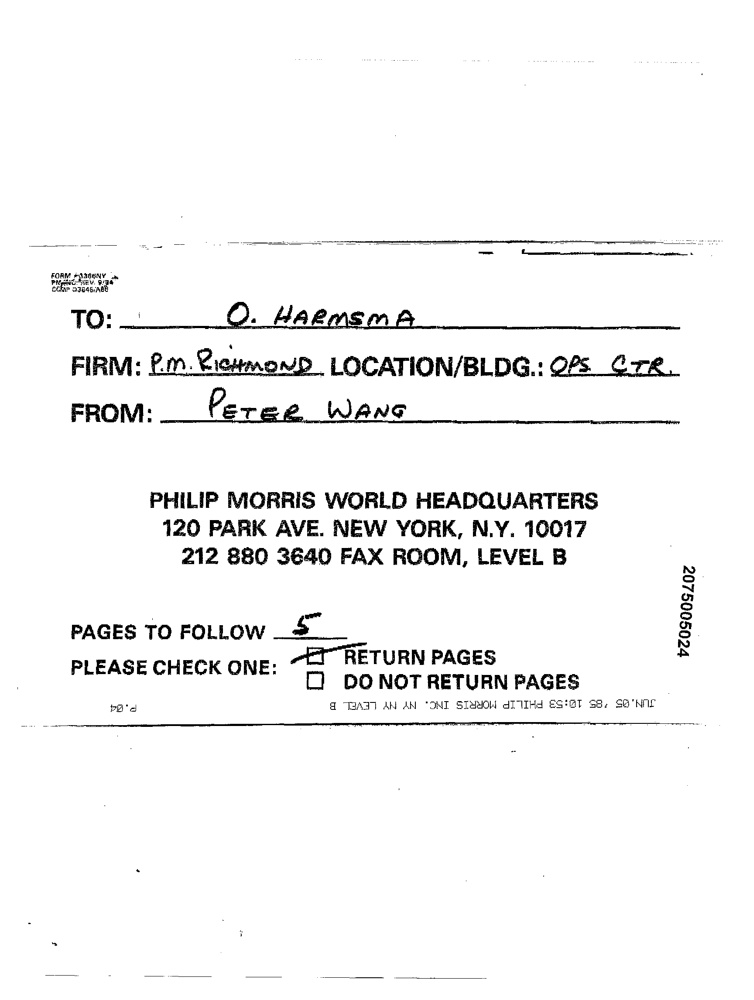 FORM
TO: O. HARMSMA
FIRM: P.M. RICHMOND LOCATION/BLDG.: OPS. CTR.
FROM: PETER WANG
PHILIP MORRIS WORLD HEADQUARTERS
120 PARK AVE. NEW YORK, N.Y. 10017
212 880 3640 FAX ROOM, LEVEL B
2075005024
PAGES TO FOLLOW 5
PLEASE CHECK ONE: RETURN PAGES
DO NOT RETURN PAGES
JUN.05 '85 10:53 PHILIP MORRIS INC. NY NY LEVEL B P.04